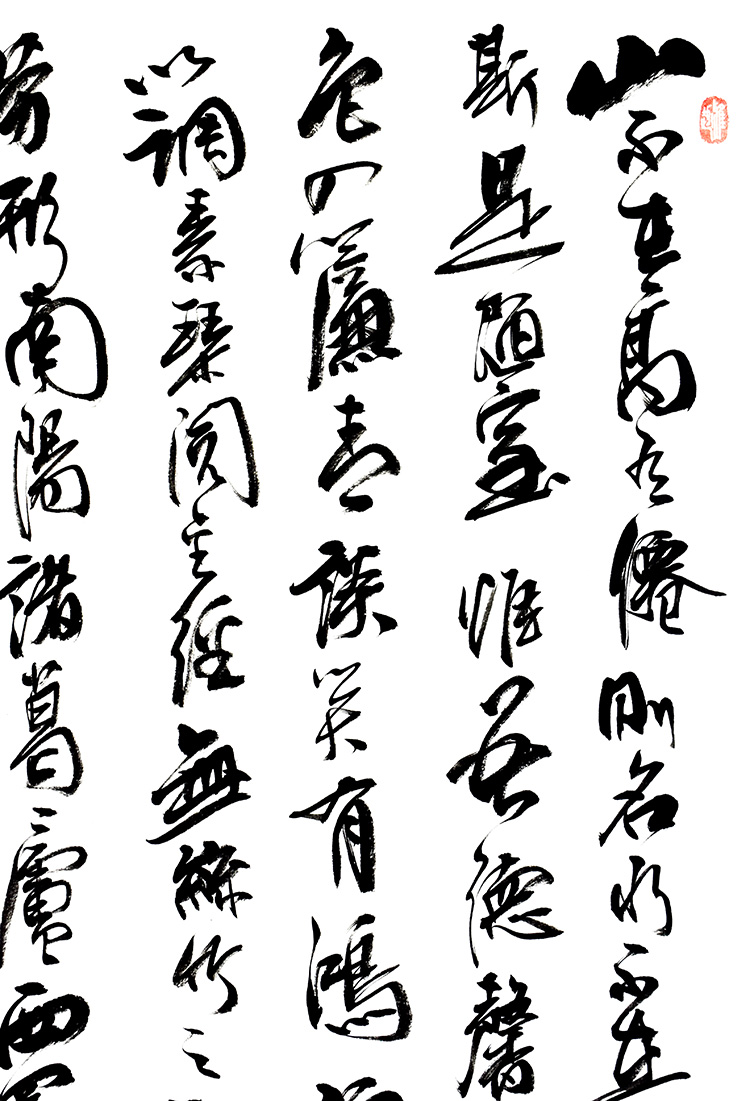 山不在高有僊則名水不在
斯是陋室惟吾德馨
色入簾青談笑有鴻
以調素琴閱金經無絲竹之
勞形南陽諸葛廬西